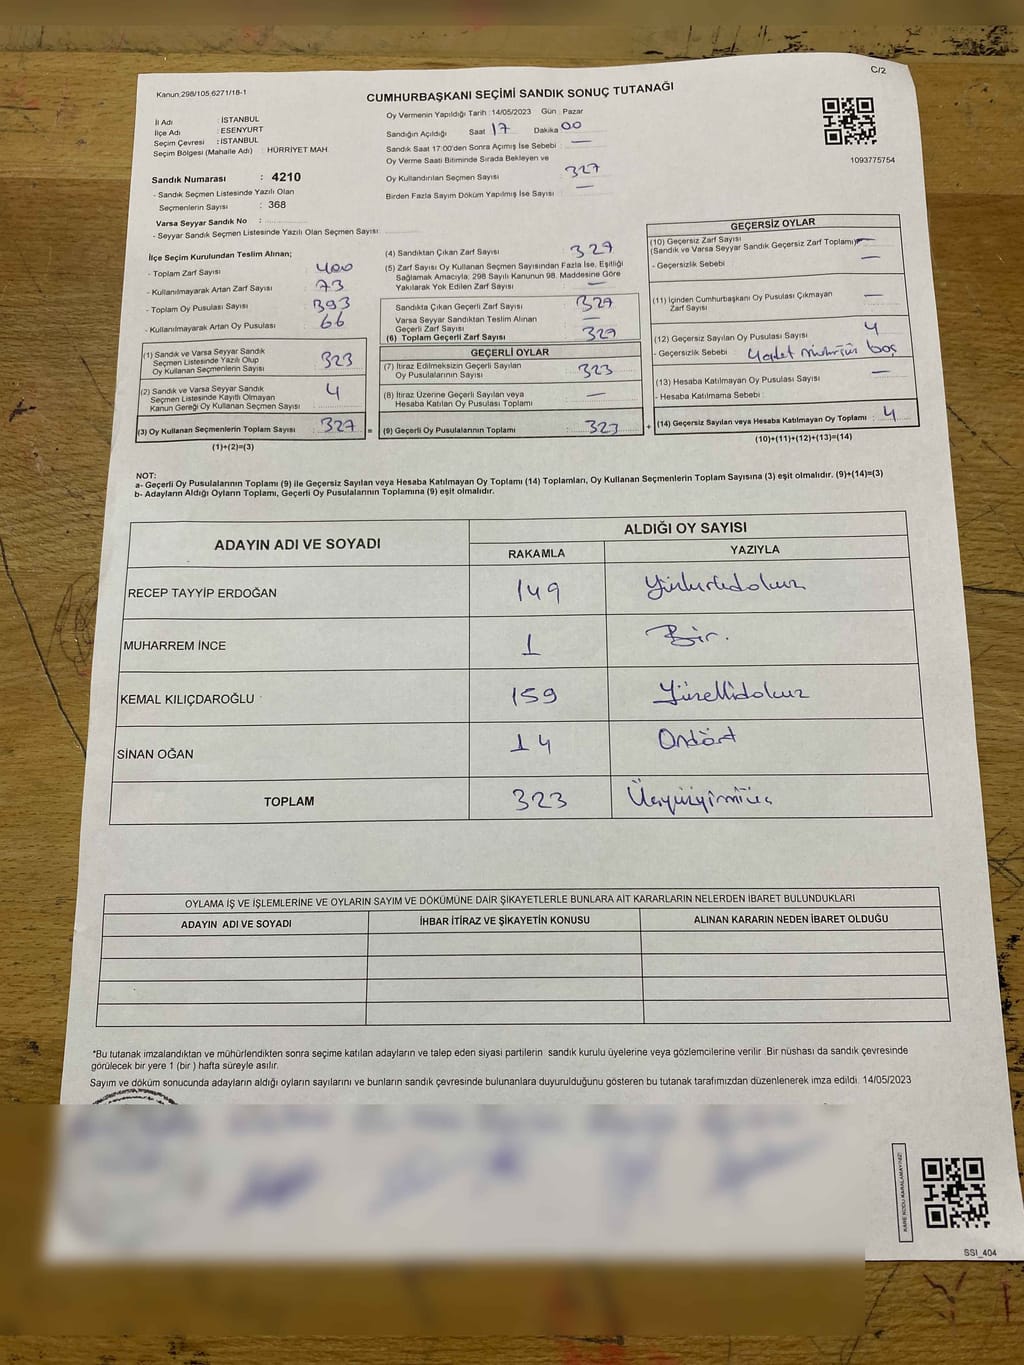 C/2
Kanun:298/105,6271/18-1
CUMHURBAŞKANI SEÇİMİ SANDIK SONUÇ TUTANAĞI
İl Adı : İSTANBUL
İlçe Adı : ESENYURT
Seçim Çevresi : İSTANBUL
Seçim Bölgesi (Mahalle Adı) : HÜRRİYET MAH.
Sandık Numarası : 4210
- Sandık Seçmen Listesinde Yazılı Olan
Seçmenlerin Sayısı : 368
Varsa Seyyar Sandık No :
- Seyyar Sandık Seçmen Listesinde Yazılı Olan Seçmen Sayısı :
Oy Vermenin Yapıldığı Tarih : 14/05/2023 Gün : Pazar
Sandığın Açıldığı Saat 17 Dakika 00
Sandık Saat 17:00'den Sonra Açılmış İse Sebebi : —
Oy Verme Saati Bitiminde Sırada Bekleyen ve
Oy Kullandırılan Seçmen Sayısı 327
Birden Fazla Sayım Döküm Yapılmış İse Sayısı : —
1093775754
İlçe Seçim Kurulundan Teslim Alınan;
- Toplam Zarf Sayısı : 400
- Kullanılmayarak Artan Zarf Sayısı : 73
- Toplam Oy Pusulası Sayısı : 393
- Kullanılmayarak Artan Oy Pusulası : 66
(1) Sandık ve Varsa Seyyar Sandık
Seçmen Listesinde Yazılı Olup
Oy Kullanan Seçmenlerin Sayısı : 323
(2) Sandık ve Varsa Seyyar Sandık
Seçmen Listesinde Kayıtlı Olmayan
Kanun Gereği Oy Kullanan Seçmen Sayısı : 4
(3) Oy Kullanan Seçmenlerin Toplam Sayısı : 327 =
(1)+(2)=(3)
(4) Sandıktan Çıkan Zarf Sayısı : 327
(5) Zarf Sayısı Oy Kullanan Seçmen Sayısından Fazla İse, Eşitliği
Sağlamak Amacıyla, 298 Sayılı Kanunun 98. Maddesine Göre
Yakılarak Yok Edilen Zarf Sayısı : —
Sandıkta Çıkan Geçerli Zarf Sayısı : 327
Varsa Seyyar Sandıktan Teslim Alınan
Geçerli Zarf Sayısı : —
(6) Toplam Geçerli Zarf Sayısı : 327
GEÇERLİ OYLAR
(7) İtiraz Edilmeksizin Geçerli Sayılan
Oy Pusulalarının Sayısı : 323
(8) İtiraz Üzerine Geçerli Sayılan veya
Hesaba Katılan Oy Pusulası Toplamı : —
(9) Geçerli Oy Pusulalarının Toplamı : 323 +
GEÇERSİZ OYLAR
(10) Geçersiz Zarf Sayısı
(Sandık ve Varsa Seyyar Sandık Geçersiz Zarf Toplamı) —
- Geçersizlik Sebebi : —
(11) İçinden Cumhurbaşkanı Oy Pusulası Çıkmayan
Zarf Sayısı : —
(12) Geçersiz Sayılan Oy Pusulası Sayısı : 4
- Geçersizlik Sebebi : 4 adet mühürsüz boş
(13) Hesaba Katılmayan Oy Pusulası Sayısı : —
- Hesaba Katılmama Sebebi :
(14) Geçersiz Sayılan veya Hesaba Katılmayan Oy Toplamı : 4
(10)+(11)+(12)+(13)=(14)
NOT:
a- Geçerli Oy Pusulalarının Toplamı (9) ile Geçersiz Sayılan veya Hesaba Katılmayan Oy Toplamı (14) Toplamları, Oy Kullanan Seçmenlerin Toplam Sayısına (3) eşit olmalıdır. (9)+(14)=(3)
b- Adayların Aldığı Oyların Toplamı, Geçerli Oy Pusulalarının Toplamına (9) eşit olmalıdır.
ADAYIN ADI VE SOYADI ALDIĞI OY SAYISI
RAKAMLA YAZIYLA
RECEP TAYYİP ERDOĞAN 149 Yüzkırkdokuz
MUHARREM İNCE 1 Bir.
KEMAL KILIÇDAROĞLU 159 Yüzellidokuz
SİNAN OĞAN 14 Ondört
TOPLAM 323 Üçyüzyirmiüç
OYLAMA İŞ VE İŞLEMLERİNE VE OYLARIN SAYIM VE DÖKÜMÜNE DAİR ŞİKAYETLERLE BUNLARA AİT KARARLARIN NELERDEN İBARET BULUNDUKLARI
ADAYIN ADI VE SOYADI İHBAR İTİRAZ VE ŞİKAYETİN KONUSU ALINAN KARARIN NEDEN İBARET OLDUĞU
*Bu tutanak imzalandıktan ve mühürlendikten sonra seçime katılan adayların ve talep eden siyasi partilerin sandık kurulu üyelerine veya gözlemcilerine verilir. Bir nüshası da sandık çevresinde
görülecek bir yere 1 (bir) hafta süreyle asılır.
Sayım ve döküm sonucunda adayların aldığı oyların sayılarını ve bunların sandık çevresinde bulunanlara duyurulduğunu gösteren bu tutanak tarafımızdan düzenlenerek imza edildi. 14/05/2023
KARE KODU KARALAMAYINIZ!
SSI_404